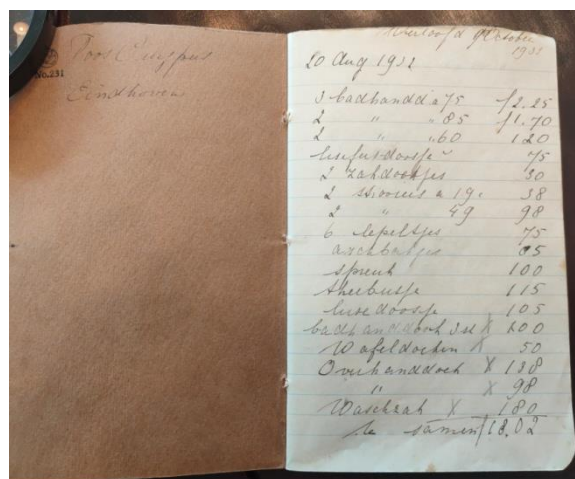 Toos Cuypers
No.231
Eindhoven
Verloofd 9 October
1932
20 Aug 1932
3 badhandd a 75 f2.25
2 " " 85 f1.70
2 " " 60 120
75
2 zakdoekjes 30
2 a 19. 38
2 " 49 98
6 lepeltjes 75
aschbakjes 85
spreuk 100
theebusje 115
luxe doosje 105
badhanddoek 3 st X 200
Wafeldoeken X 50
Overhanddoek X 138
" X 98
Waschzak X 180
te samen f18.02